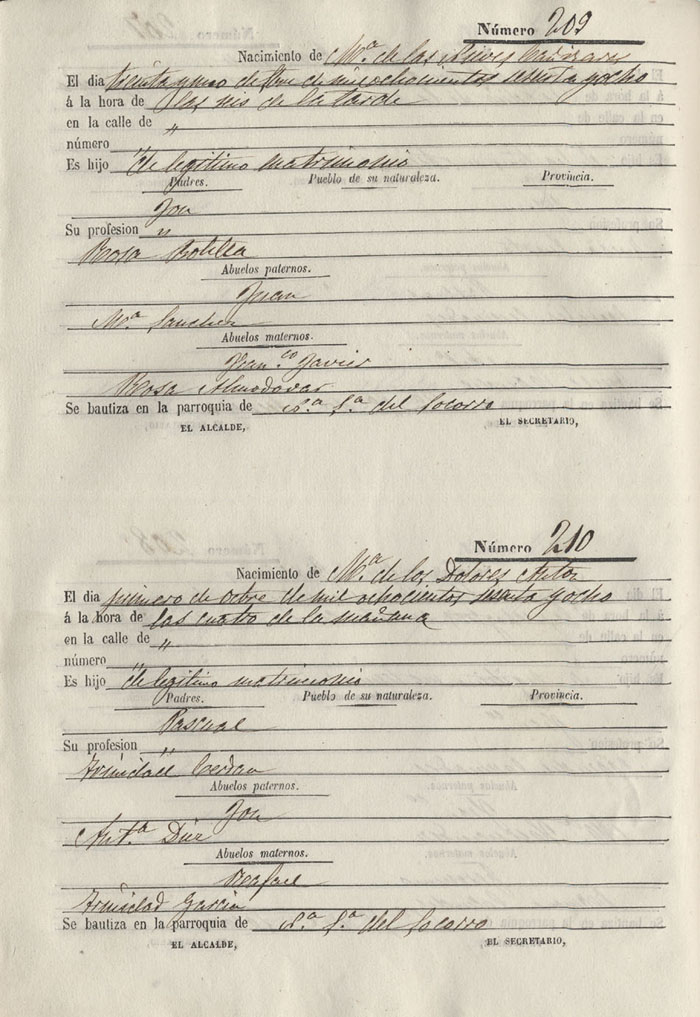 Número 209
Nacimiento de Mª de las Nieves
El dia treinta y uno de de mil ochocientos sesenta y ocho
á la hora de las seis de la tarde
en la calle de "
número "
Es hijo de legitimo matrimonio
Padres. Pueblo de su naturaleza. Provincia.
Su profesion "
Rosa Botella
Abuelos paternos.
Juan
Mª Sanchez
Abuelos maternos.
Franco Javier
Rosa Almodovar
Se bautiza en la parroquia de Nª Sª del Socorro
EL ALCALDE, EL SECRETARIO,
Número 210
Nacimiento de Mª de los Dolores Anton
El dia primero de Octbre de mil ochocientos sesenta y ocho
á la hora de las cuatro de la mañana
en la calle de "
número "
Es hijo de legitimo matrimonio
Padres. Pueblo de su naturaleza. Provincia.
Pascual
Su profesion "
Trinidad Cerdan
Abuelos paternos.
Antª
Abuelos maternos.
Rafael
Trinidad Garcia
Se bautiza en la parroquia de Nª Sª del Socorro
EL ALCALDE, EL SECRETARIO,